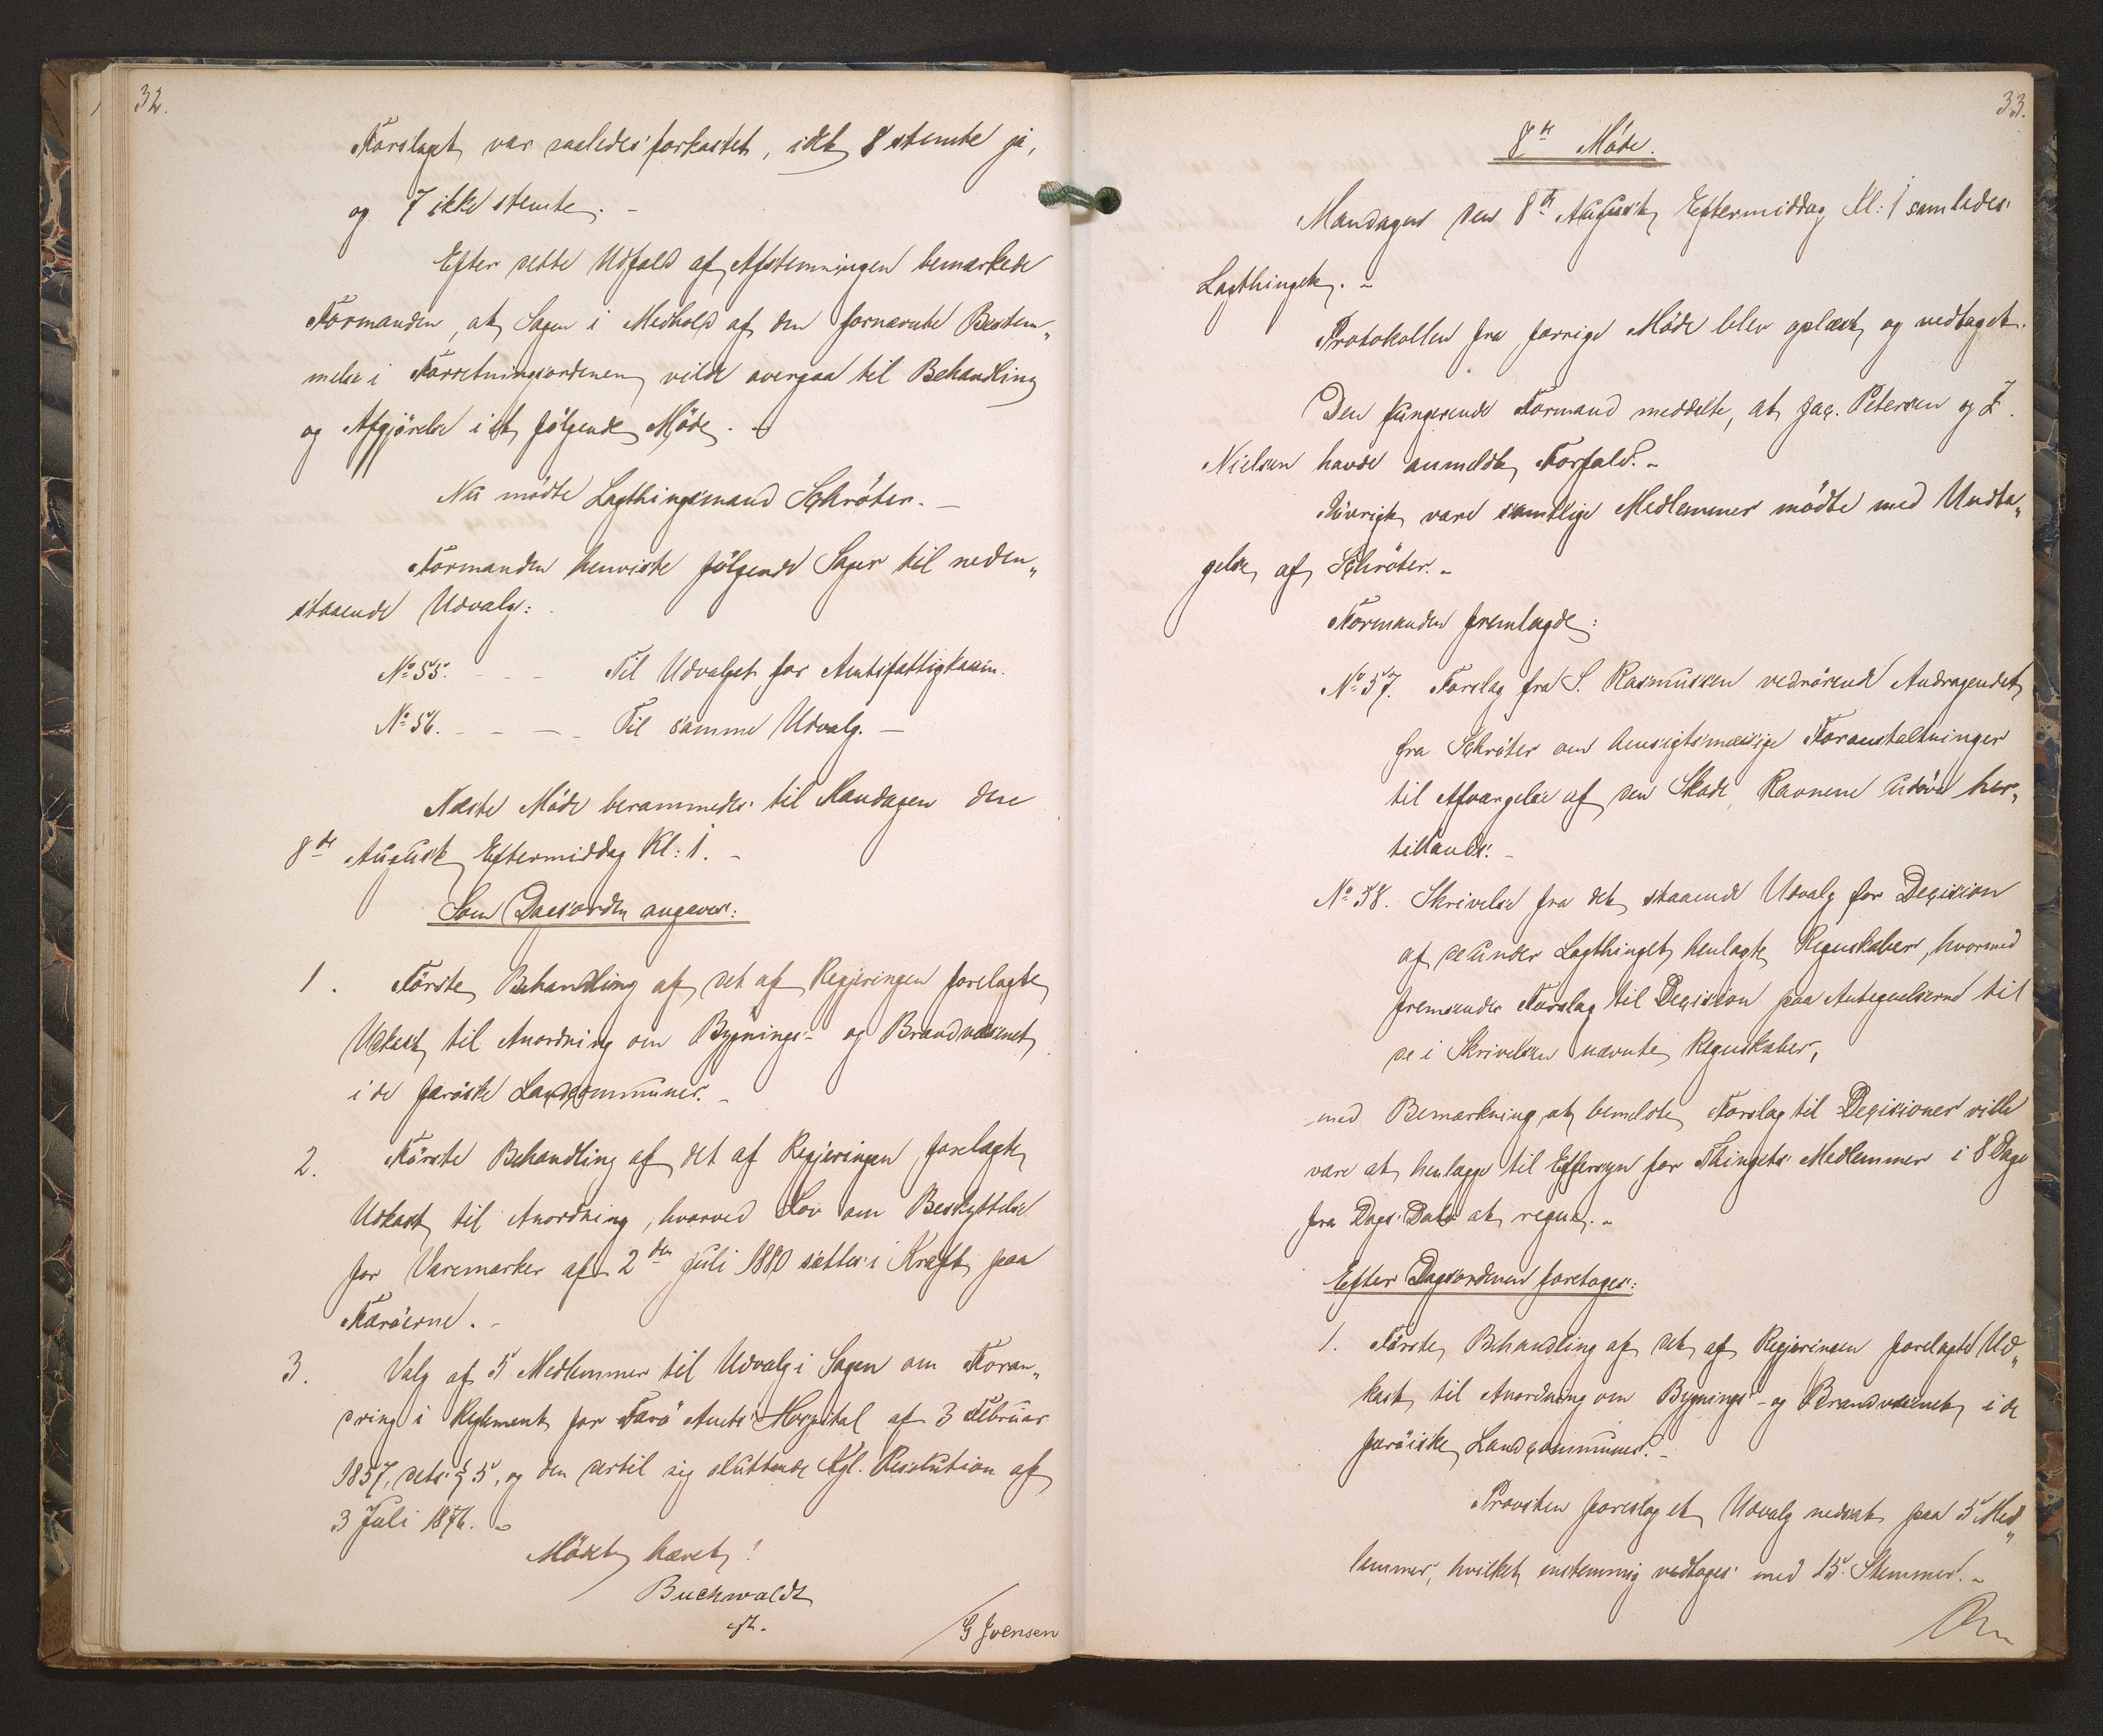 32.
Forslaget var saaledes forkastet, idet 8 stemte ja,
og 7 ikke stemte. -
Efter dette Udfald af Afstemningen bemærkede
Formanden, at Sagen i Medhold af den fornævnte Bestem„
melse i Forretningsordenen vilde overgaa til Behandling
og Afgjörelse i et fölgende Möde. -
Nu mödte Lagthingsmand Schröter. -
Formanden henviste fölgende Sager til neden„
staaende Udvalg:
No 55. - - - Til Udvalget for Amtsfattigkassen.
No 56. - - - - Til samme Udvalg. -
Næste Möde berammedes til Mandagen den
8de August Eftermiddag Kl: 1. -
Som Dagsorden angaves:
1. Förste Behandling af det af Regjeringen forelagte
Udkast til Anordning om Bygnings- og Brandvæsenet
i de færöiske Landcommuner. -
2. Förste Behandling af det af Regjeringen forelagte
Udkast til Anordning, hvorved Lov om Beskyttelse
for Varemærker af 2den Juli 1880 sættes i Kraft paa
Færöerne. -
3. Valg af 5 Medlemmer til Udvalg i Sagen om Foran„
dring i Reglement for Færö Amts Hospital af 3 Februar
1857, dets § 5, og den dertil sig sluttende Kgl. Resolution af
3 Juli 1876. -
Mödet hævet!
Buchwaldt
ft.
/ G Joensen
33.
8de Möde.
Mandagen den 8de August Eftermiddag Kl: 1 samledes
Lagthinget. -
Protokollen fra forrige Möde blev oplæst og vedtaget.
Den fungerende Formand meddelte, at Jac. Petersen og J.
Nielsen havde anmeldt Forfald. -
Iövrigt vare samtlige Medlemmer mödte med Undta„
gelse af Schröter. -
Formanden fremlagde:
No 57. Forslag fra S. Rasmussen vedrörende Andragendet
fra Schröter om hensigtsmæssige Foranstaltninger
til Afværgelse af den Skade, Ravnene udöve her„
tillands. -
No 58. Skrivelse fra det staaende Udvalg for Decision
af de under Lagthinget henlagte Regnskaber, hvormed
fremsendes Forslag til Decision paa Antegnelserne til
de i Skrivelsen nævnte Regnskaber,
med Bemærkning, at bemeldte Forslag til Decisioner ville
være at henlægge til Eftersyn for Thingets Medlemmer i 8 Dage
fra Dags Dato at regne. -
Efter Dagsordenen foretoges:
1. Förste Behandling af det af Regjeringen forelagte Ud„
kast til Anordning om Bygnings- og Brandvæsenet i de
færöiske Landcommuner. -
Provsten foreslog et Udvalg nedsat paa 5 Med„
lemmer, hvilket enstemmig vedtoges med 15 Stemmer. -